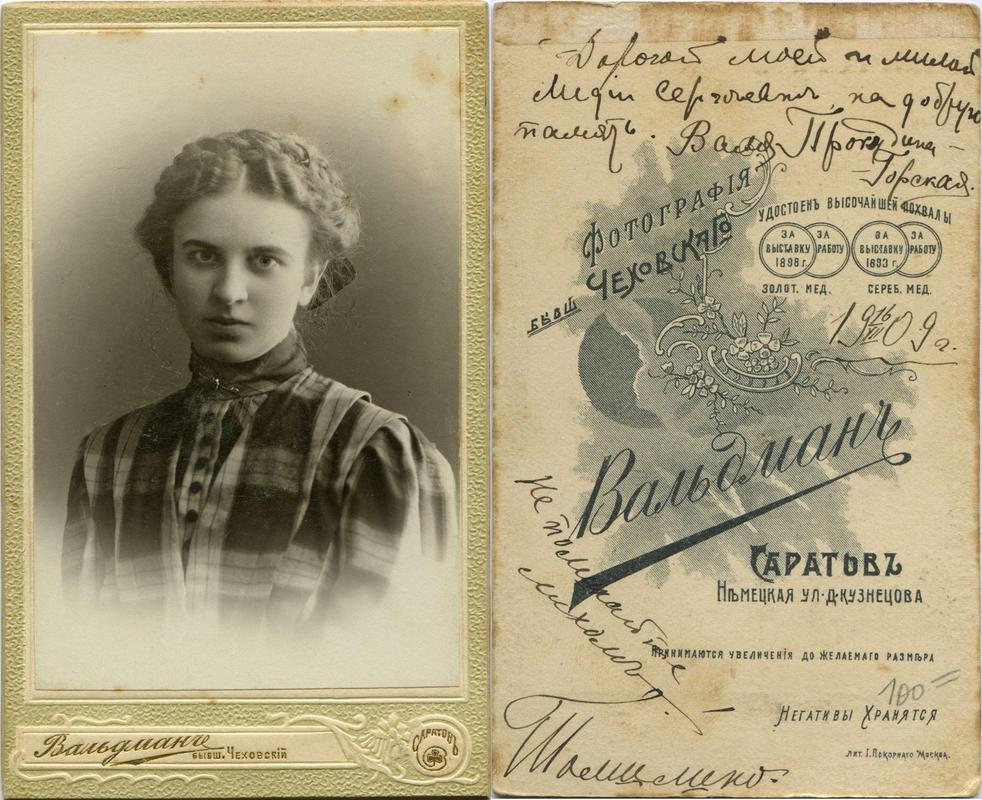 Вальдманъ
бывш. Чеховскій
Саратовъ
Дорогой моей и милой
Лидіи Сергѣевнѣ, на добрую
память. Валя Прокудина-
Горская.
Фотографія
Чеховскаго
бывш
Удостоенъ Высочайшей похвалы
За выставку 1898 г.
За работу
За выставку 1893 г.
За работу
Золот. мед.
Сереб. мед.
19 16/VI 09 г.
Вальдманъ
Саратовъ
Нѣмецкая ул. д. Кузнецова
Не поминайте
лихомъ!
Принимаются увеличенія до желаемаго размѣра
100=
Негативы хранятся
Лит. І. Покорнаго Москва.